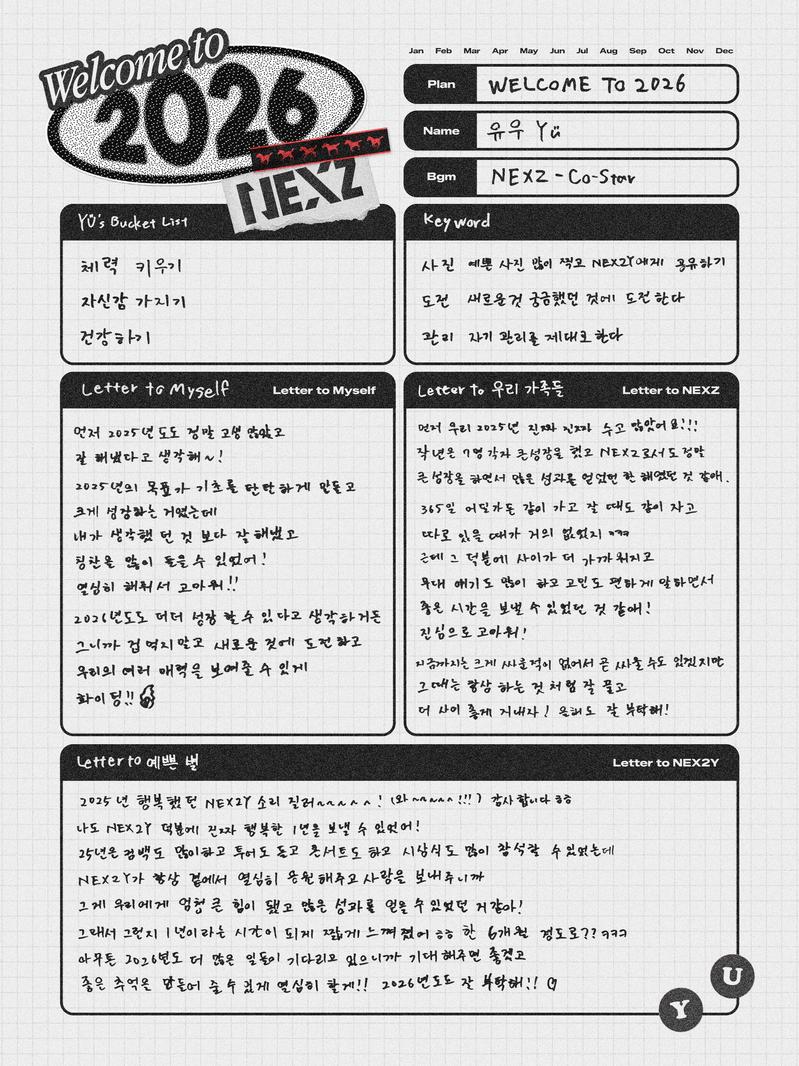 Welcome to
2026
NEXZ
Jan Feb Mar Apr May Jun Jul Aug Sep Oct Nov Dec
Plan WELCOME TO 2026
Name 유우 Yü
Bgm NEXZ - Co-Star
YÜ's Bucket List
체력 키우기
자신감 가지기
건강하기
Key word
사진 예쁜 사진 많이 찍고 NEX2Y에게 공유하기
도전 새로운것 궁금했던 것에 도전한다
관리 자기 관리를 제대로 한다
Letter to Myself Letter to Myself
먼저 2025년도도 정말 고생 많았고
잘 해냈다고 생각해~!
2025년의 목표가 기초를 탄탄하게 만들고
크게 성장하는 거였는데
내가 생각했던 것 보다 잘 해냈고
칭찬을 많이 들을 수 있었어!
열심히 해줘서 고마워!!
2026년도도 더더 성장 할 수 있다고 생각하거든
그니까 겁먹지말고 새로운 것에 도전하고
우리의 여러 매력을 보여줄 수 있게
화이팅!!
Letter to 우리 가족들 Letter to NEXZ
먼저 우리 2025년 진짜 진짜 수고 많았어요!!!
작년은 7명 각자 큰성장을 했고 NEXZ로서도 정말
큰 성장을 하면서 많은 성과를 얻었던 한 해였던 것 같애.
365일 어딜가든 같이 가고 잘 때도 같이 자고
따로 있을 때가 거의 없었지 ㅋㅋㅋ
근데 그 덕분에 사이가 더 가까워지고
무대 얘기도 많이 하고 고민도 편하게 말하면서
좋은 시간을 보낼 수 있었던 것 같애!
진심으로 고마워!
지금까지는 크게 싸운적이 없어서 곧 싸울 수도 있겠지만
그때는 항상 하는 것 처럼 잘 풀고
더 사이 좋게 지내자! 올해도 잘 부탁해!
Letter to 예쁜 별 Letter to NEX2Y
2025년 행복했던 NEX2Y 소리 질러~~~~~! (와~~~~~!!!) 감사합니다 ㅎㅎ
나도 NEX2Y 덕분에 진짜 행복한 1년을 보낼 수 있었어!
25년은 컴백도 많이하고 투어도 돌고 콘서트도 하고 시상식도 많이 참석할 수 있었는데
NEX2Y가 항상 곁에서 열심히 응원해주고 사랑을 보내주니까
그게 우리에게 엄청 큰 힘이 됐고 많은 성과를 얻을 수 있었던 거같아!
그래서 그런지 1년이라는 시간이 되게 짧게 느껴졌어 ㅎㅎ 한 6개월 정도로?? ㅋㅋㅋ
아무튼 2026년도 더 많은 일들이 기다리고 있으니까 기대해주면 좋겠고
좋은 추억을 만들어 줄 수 있게 열심히 할게!! 2026년도도 잘 부탁해!!
U
Y